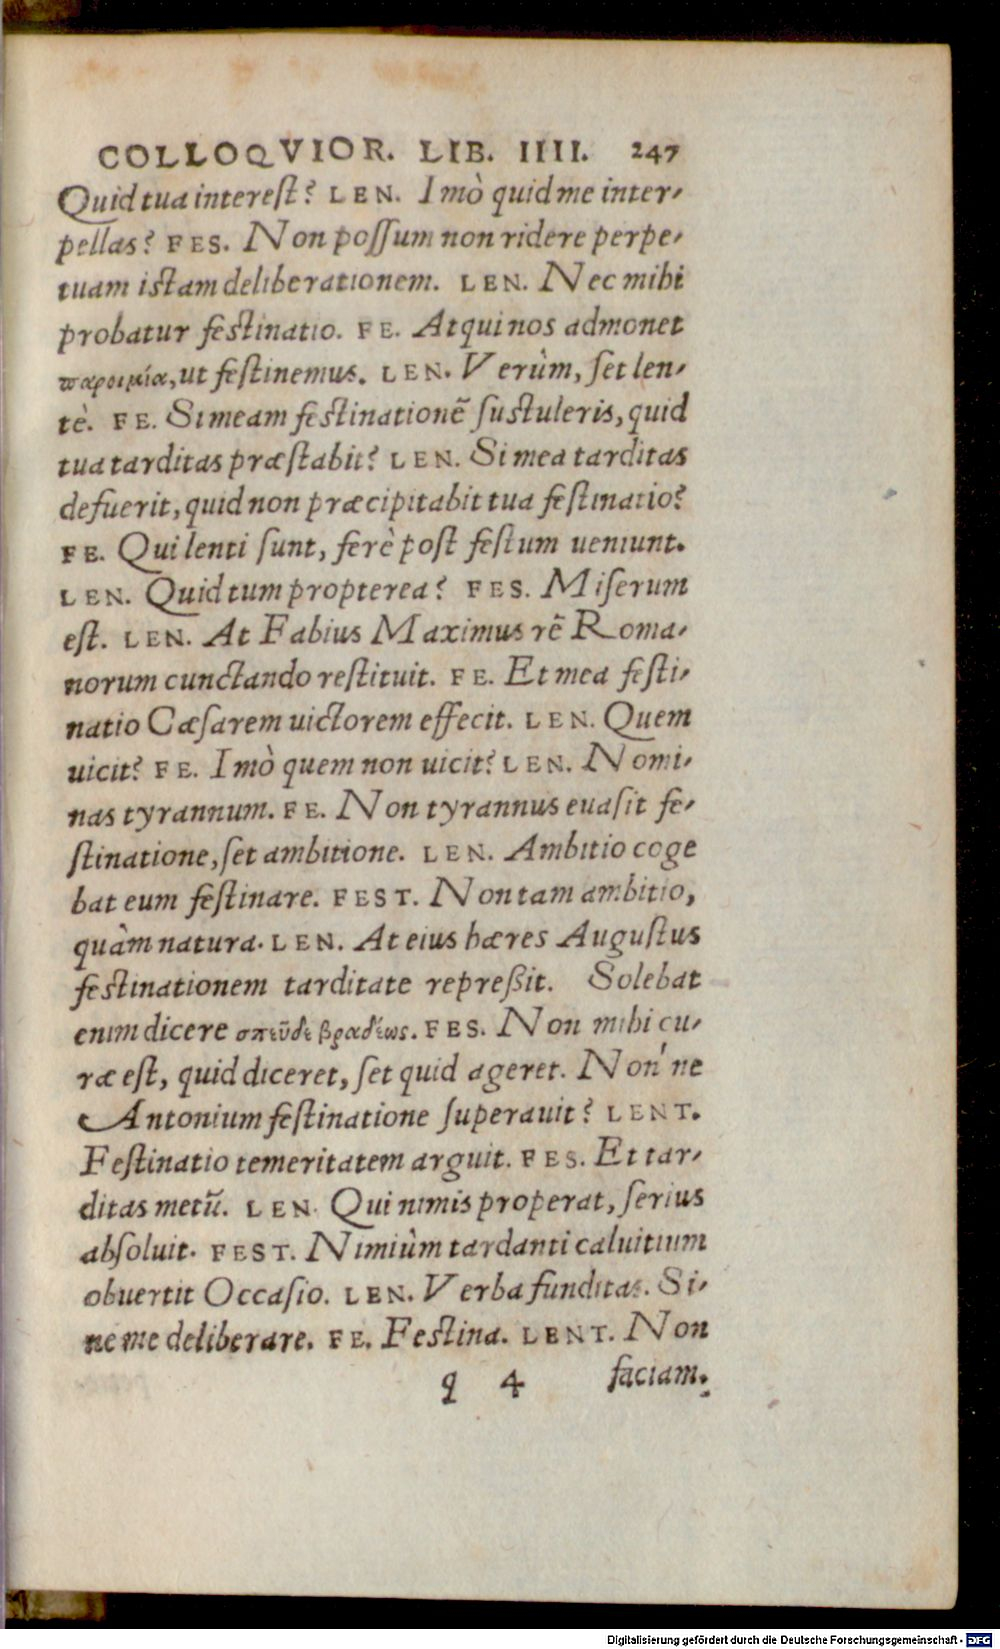 COLLOQVIOR. LIB. IIII. 247
Quid tua interest? LEN. Imò quid me inter-
pellas? FES. Non possum non ridere perpe-
tuam istam deliberationem. LEN. Nec mihi
probatur festinatio. FE. Atqui nos admonet
παροιμία, ut festinemus. LEN. Verùm, set len-
tè. FE. Si meam festinationẽ sustuleris, quid
tua tarditas præstabit? LEN. Si mea tarditas
defuerit, quid non præcipitabit tua festinatio?
FE. Qui lenti sunt, ferè post festum ueniunt.
LEN. Quid tum propterea? FES. Miserum
est. LEN. At Fabius Maximus rẽ Roma-
norum cunctando restituit. FE. Et mea festi-
natio Cæsarem uictorem effecit. LEN. Quem
uicit? FE. Imò quem non uicit? LEN. Nomi-
nas tyrannum. FE. Non tyrannus euasit fe-
stinatione, set ambitione. LEN. Ambitio coge
bat eum festinare. FEST. Non tam ambitio,
quàm natura. LEN. At eius hæres Augustus
festinationem tarditate repreßit. Solebat
enim dicere σπεῦδε βραδέως. FES. Non mihi cu-
ræ est, quid diceret, set quid ageret. Non'ne
Antonium festinatione superauit? LENT.
Festinatio temeritatem arguit. FES. Et tar-
ditas metũ. LEN. Qui nimis properat, serius
absoluit. FEST. Nimiùm tardanti caluitium
obuertit Occasio. LEN. Verba funditas. Si-
ne me deliberare. FE. Festina. LENT. Non
q 4 faciam.
Digitalisierung gefördert durch die Deutsche Forschungsgemeinschaft - DFG